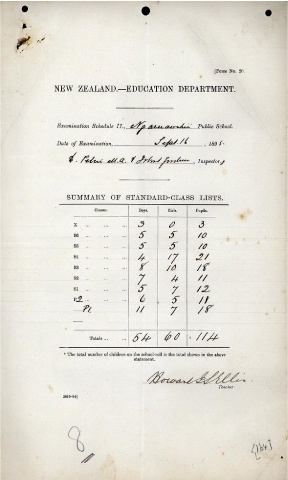 (Form No. 2)
NEW ZEALAND.—EDUCATION DEPARTMENT.
Examination Schedule II., Ngaruawahia Public School.
Date of Examination, Sept 16 1895.
D. Petrie M.A. & Inspectors
SUMMARY OF STANDARD-CLASS LISTS.
Classes. Boys. Girls. Pupils.
X .. .. .. 3 0 3
S6 .. .. .. 5 5 10
S5 .. .. .. 5 5 10
S4 .. .. .. 4 17 21
S3 .. .. .. 8 10 18
S2 .. .. .. 7 4 11
S1 .. .. .. 5 7 12
P2 .. .. .. 6 5 11
P1 .. .. .. 11 7 18
Totals .. .. 54 60 114
* The total number of children on the school-roll is the total shown in the above
statement.
Howard G. S. Ellis
Teacher.
8